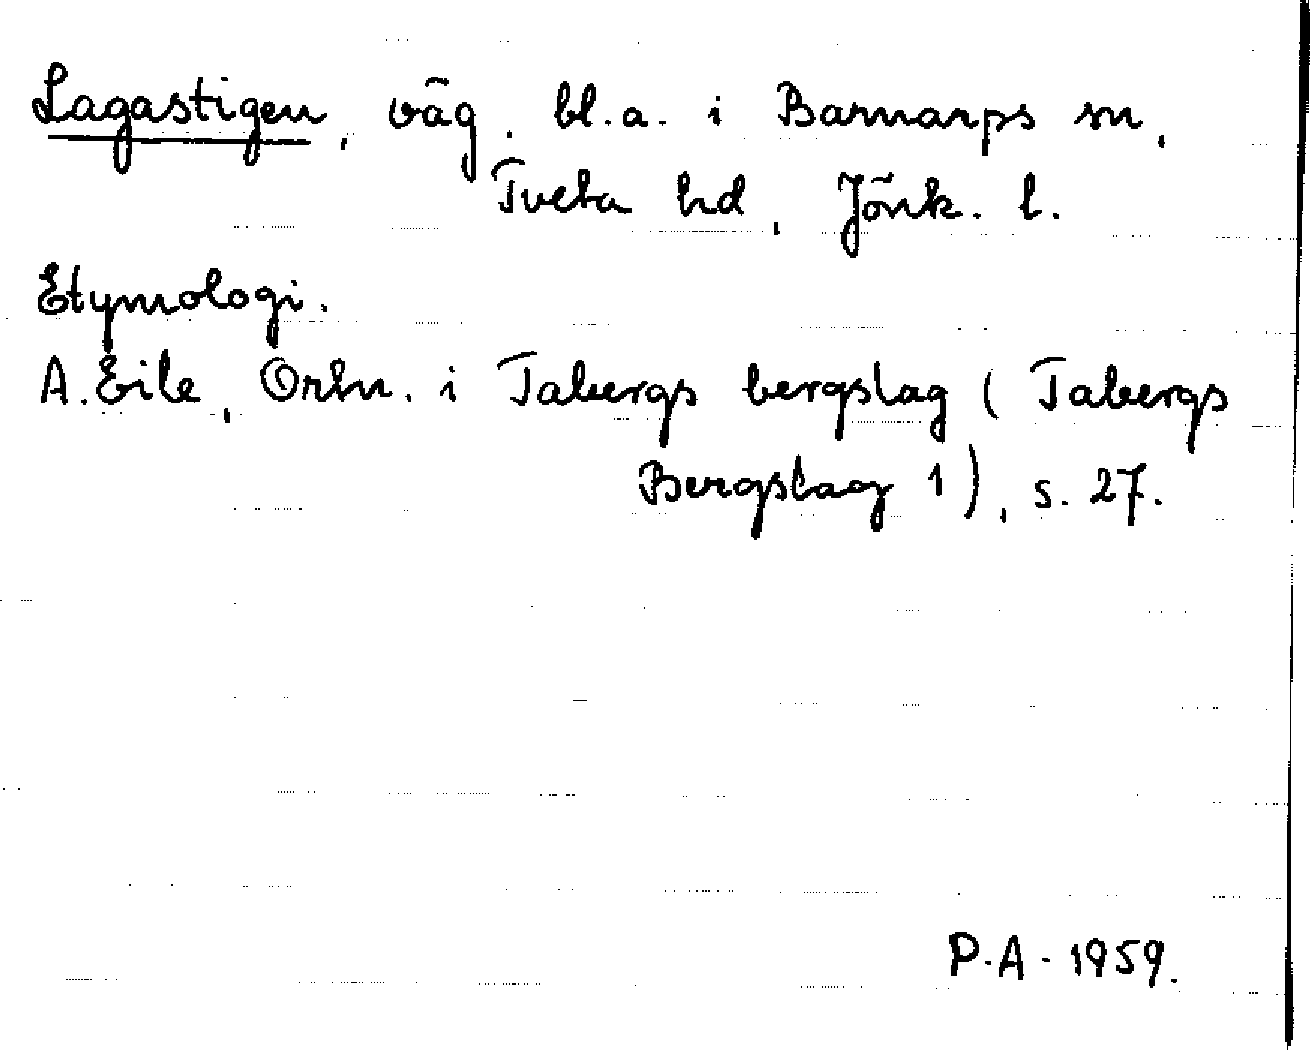 Lagastigen, väg, bl.a. i Barnarps sn,
Tveta hd, Jönk. l.
Etymologi.
A. Eile, Ortn. i Tabergs bergslag (Tabergs
Bergslag 1), s. 27.
P.A. 1959.